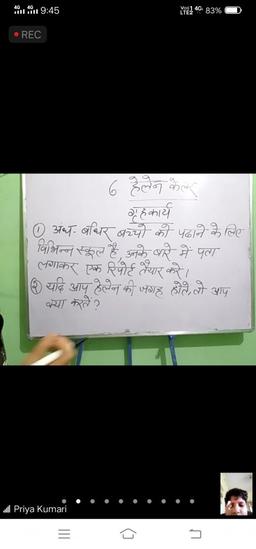 9:45
83%
REC
6 हेलेन केलर
गृहकार्य
① अंध-बधिर बच्चों को पढ़ाने के लिए
विभिन्न स्कूल है, उनके बारे में पता
लगाकर एक रिपोर्ट तैयार करें।
② यदि आप हेलेन की जगह होते, तो आप
क्या करते?
Priya Kumari